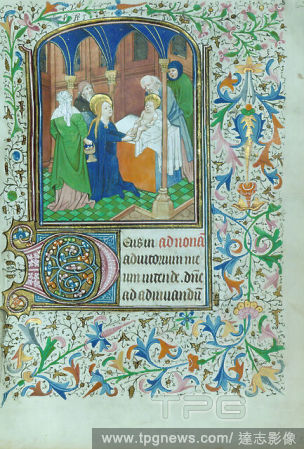 Deus in ad nonā
adiutorium me
um intende. dñe
ad adiuuandū
TPG
www.tpgnews.com/ 達志影像